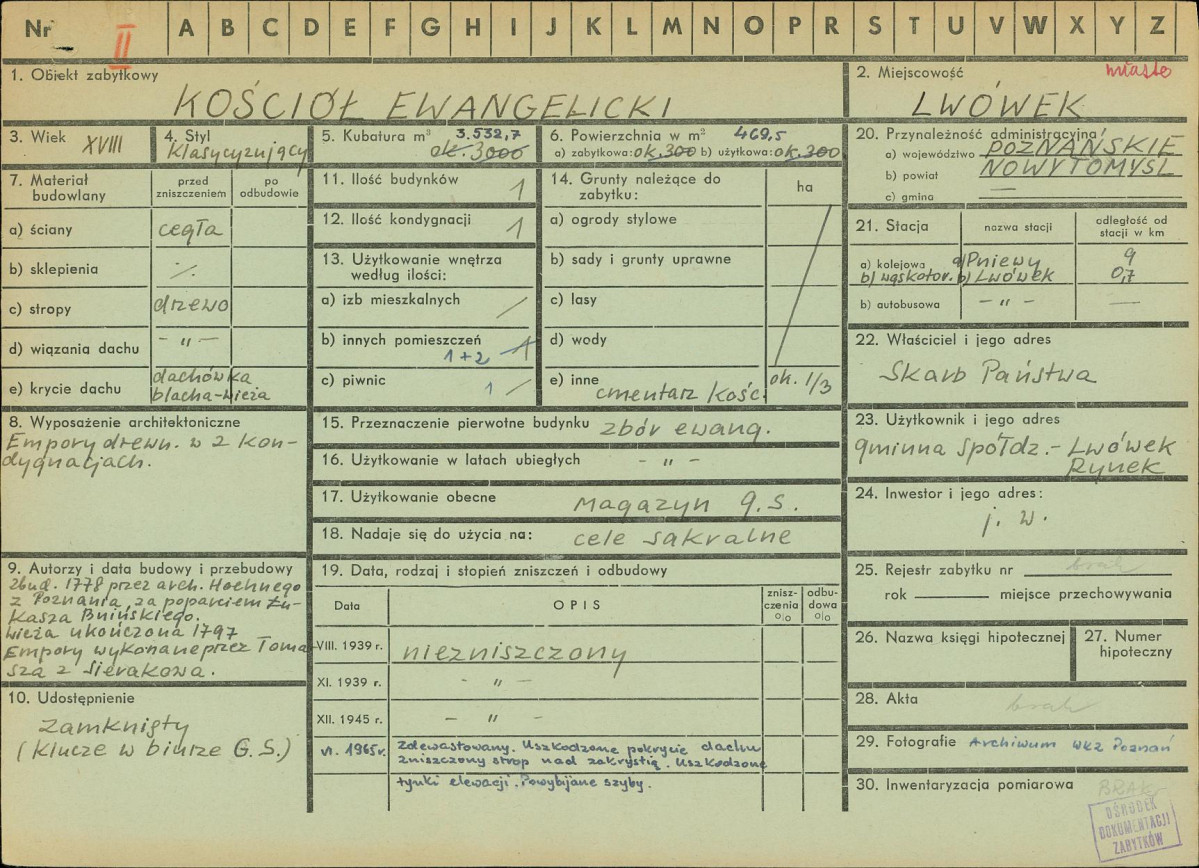 Nr II A B C D E F G H I J K L M N O P R S T U V W X Y Z
1. Obiekt zabytkowy
KOŚCIÓŁ EWANGELICKI
2. Miejscowość miasto
LWÓWEK
3. Wiek XVIII
4. Styl
Klasycyzujący
5. Kubatura m³ 3.532,7
ok. 3000
6. Powierzchnia w m² 469,5
a) zabytkowa: ok. 300 b) użytkowa: ok. 300
20. Przynależność administracyjna
a) województwo POZNAŃSKIE
b) powiat NOWY TOMYSL
c) gmina —
7. Materiał budowlany
przed zniszczeniem
po odbudowie
a) ściany cegła
b) sklepienia ./.
c) stropy drzewo
d) wiązania dachu - " -
e) krycie dachu dachówka
blacha-wieża
11. Ilość budynków 1
12. Ilość kondygnacji 1
13. Użytkowanie wnętrza
według ilości:
a) izb mieszkalnych /
b) innych pomieszczeń 1
1+2
c) piwnic 1 /
14. Grunty należące do
zabytku:
ha
a) ogrody stylowe
b) sady i grunty uprawne
c) lasy
d) wody
e) inne
cmentarz kośc. ok. 1/3
21. Stacja
nazwa stacji
odległość od
stacji w km
a) kolejowa a) Pniewy 9
b) wąskotor. b) Lwówek 0,7
b) autobusowa - " - —
22. Właściciel i jego adres
Skarb Państwa
8. Wyposażenie architektoniczne
Empory drewn. w 2 kon-
dygnacjach.
15. Przeznaczenie pierwotne budynku zbór ewang.
16. Użytkowanie w latach ubiegłych - " -
17. Użytkowanie obecne magazyn g.s.
18. Nadaje się do użycia na: cele sakralne
23. Użytkownik i jego adres
gminna Spółdz. - Lwówek
Rynek
24. Inwestor i jego adres:
j. w.
9. Autorzy i data budowy i przebudowy
zbud. 1778 przez arch. Hoehnego
z Poznania, za poparciem Łu-
kasza Bnińskiego.
Wieża ukończona 1797
Empory wykonane przez Toma
sza z Sierakowa.
10. Udostępnienie
zamknięty
(Klucze w biurze G.S.)
19. Data, rodzaj i stopień zniszczeń i odbudowy
Data
OPIS
znisz-
czenia
%
odbu-
dowa
%
VIII. 1939 r. niezniszczony
XI. 1939 r. - " -
XII. 1945 r. - " -
VI. 1965 r. Zdewastowany. Uszkodzone pokrycie dachu
zniszczony strop nad zakrystią. Uszkodzone
tynki elewacji. Powybijane szyby.
25. Rejestr zabytku nr brak
rok miejsce przechowywania
26. Nazwa księgi hipotecznej
27. Numer
hipoteczny
28. Akta brak
29. Fotografie Archiwum WKZ Poznań
30. Inwentaryzacja pomiarowa BRAK
OŚRODEK
DOKUMENTACJI
ZABYTKÓW